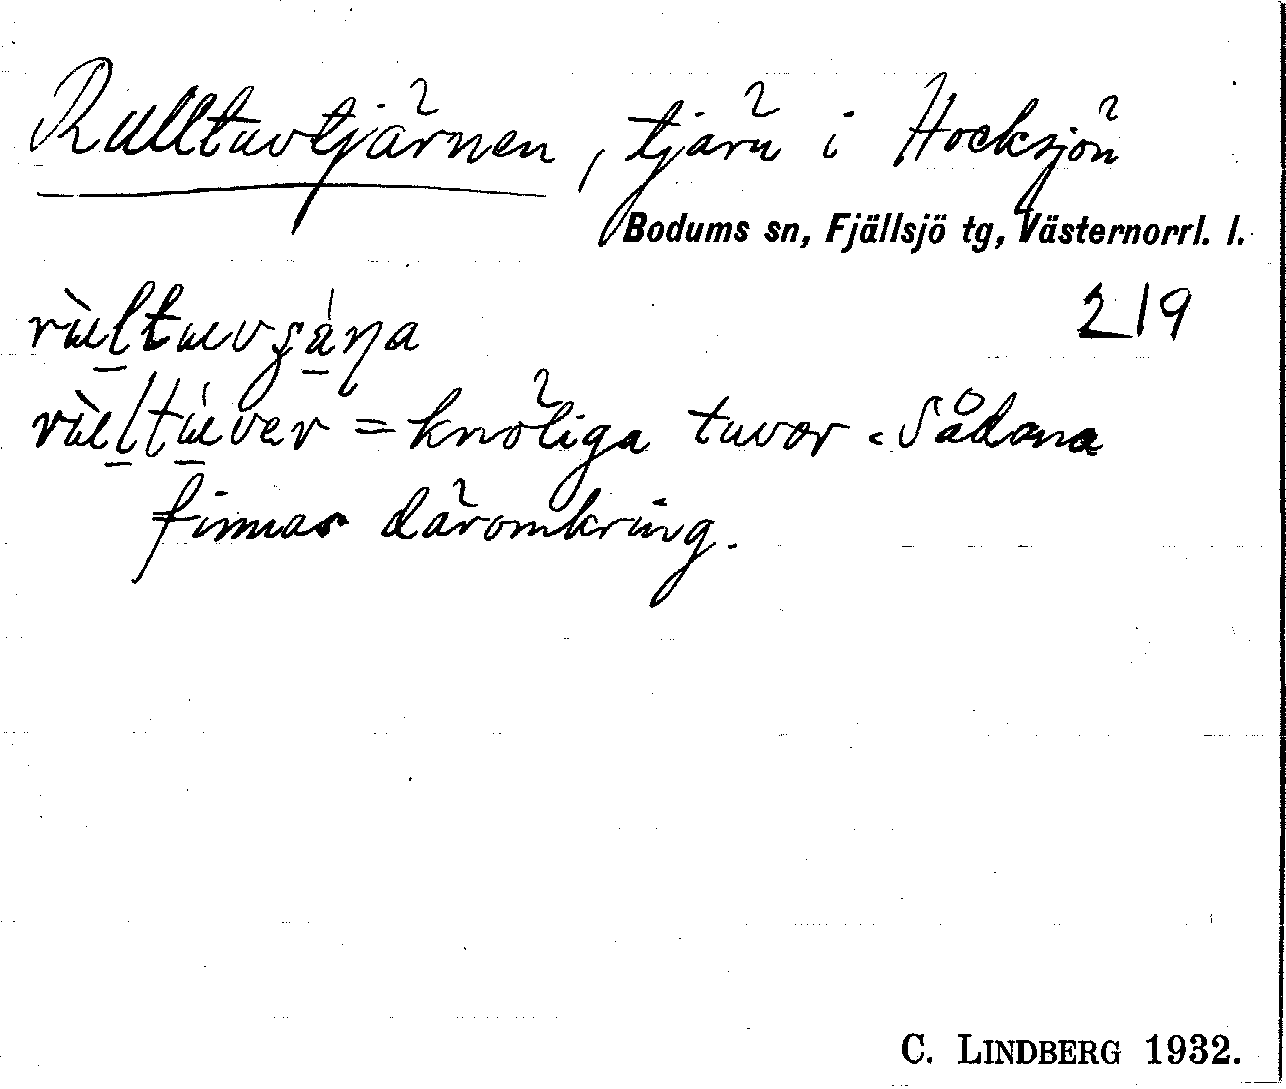 Rulltuvtjärnen, tjärn i Hocksjön
Bodums sn, Fjällsjö tg, Västernorrl. l.
219
rùltuvşáŋa
rùltúver = knöliga tuvor. Sådana
finnas däromkring.
C. LINDBERG 1932.